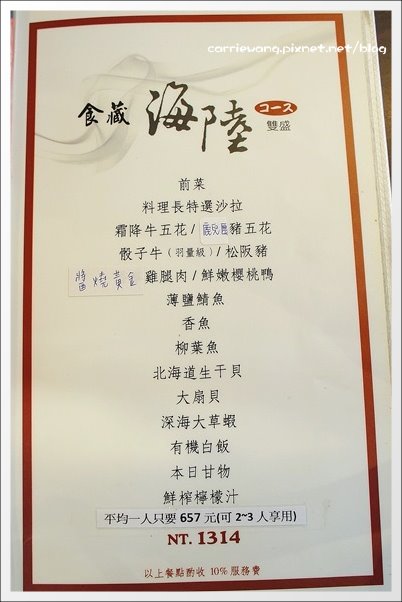 carriewang.pixnet.net/blog
食藏 海陸 コース
雙盛
前菜
料理長特選沙拉
霜降牛五花 / 鹿兒島豬五花
骰子牛 (羽量級) / 松阪豬
醬燒黃金雞腿肉 / 鮮嫩櫻桃鴨
薄鹽鯖魚
香魚
柳葉魚
北海道生干貝
大扇貝
深海大草蝦
有機白飯
本日甘物
鮮榨檸檬汁
平均一人只要 657 元(可 2~3 人享用)
NT. 1314
以上餐點酌收 10% 服務費